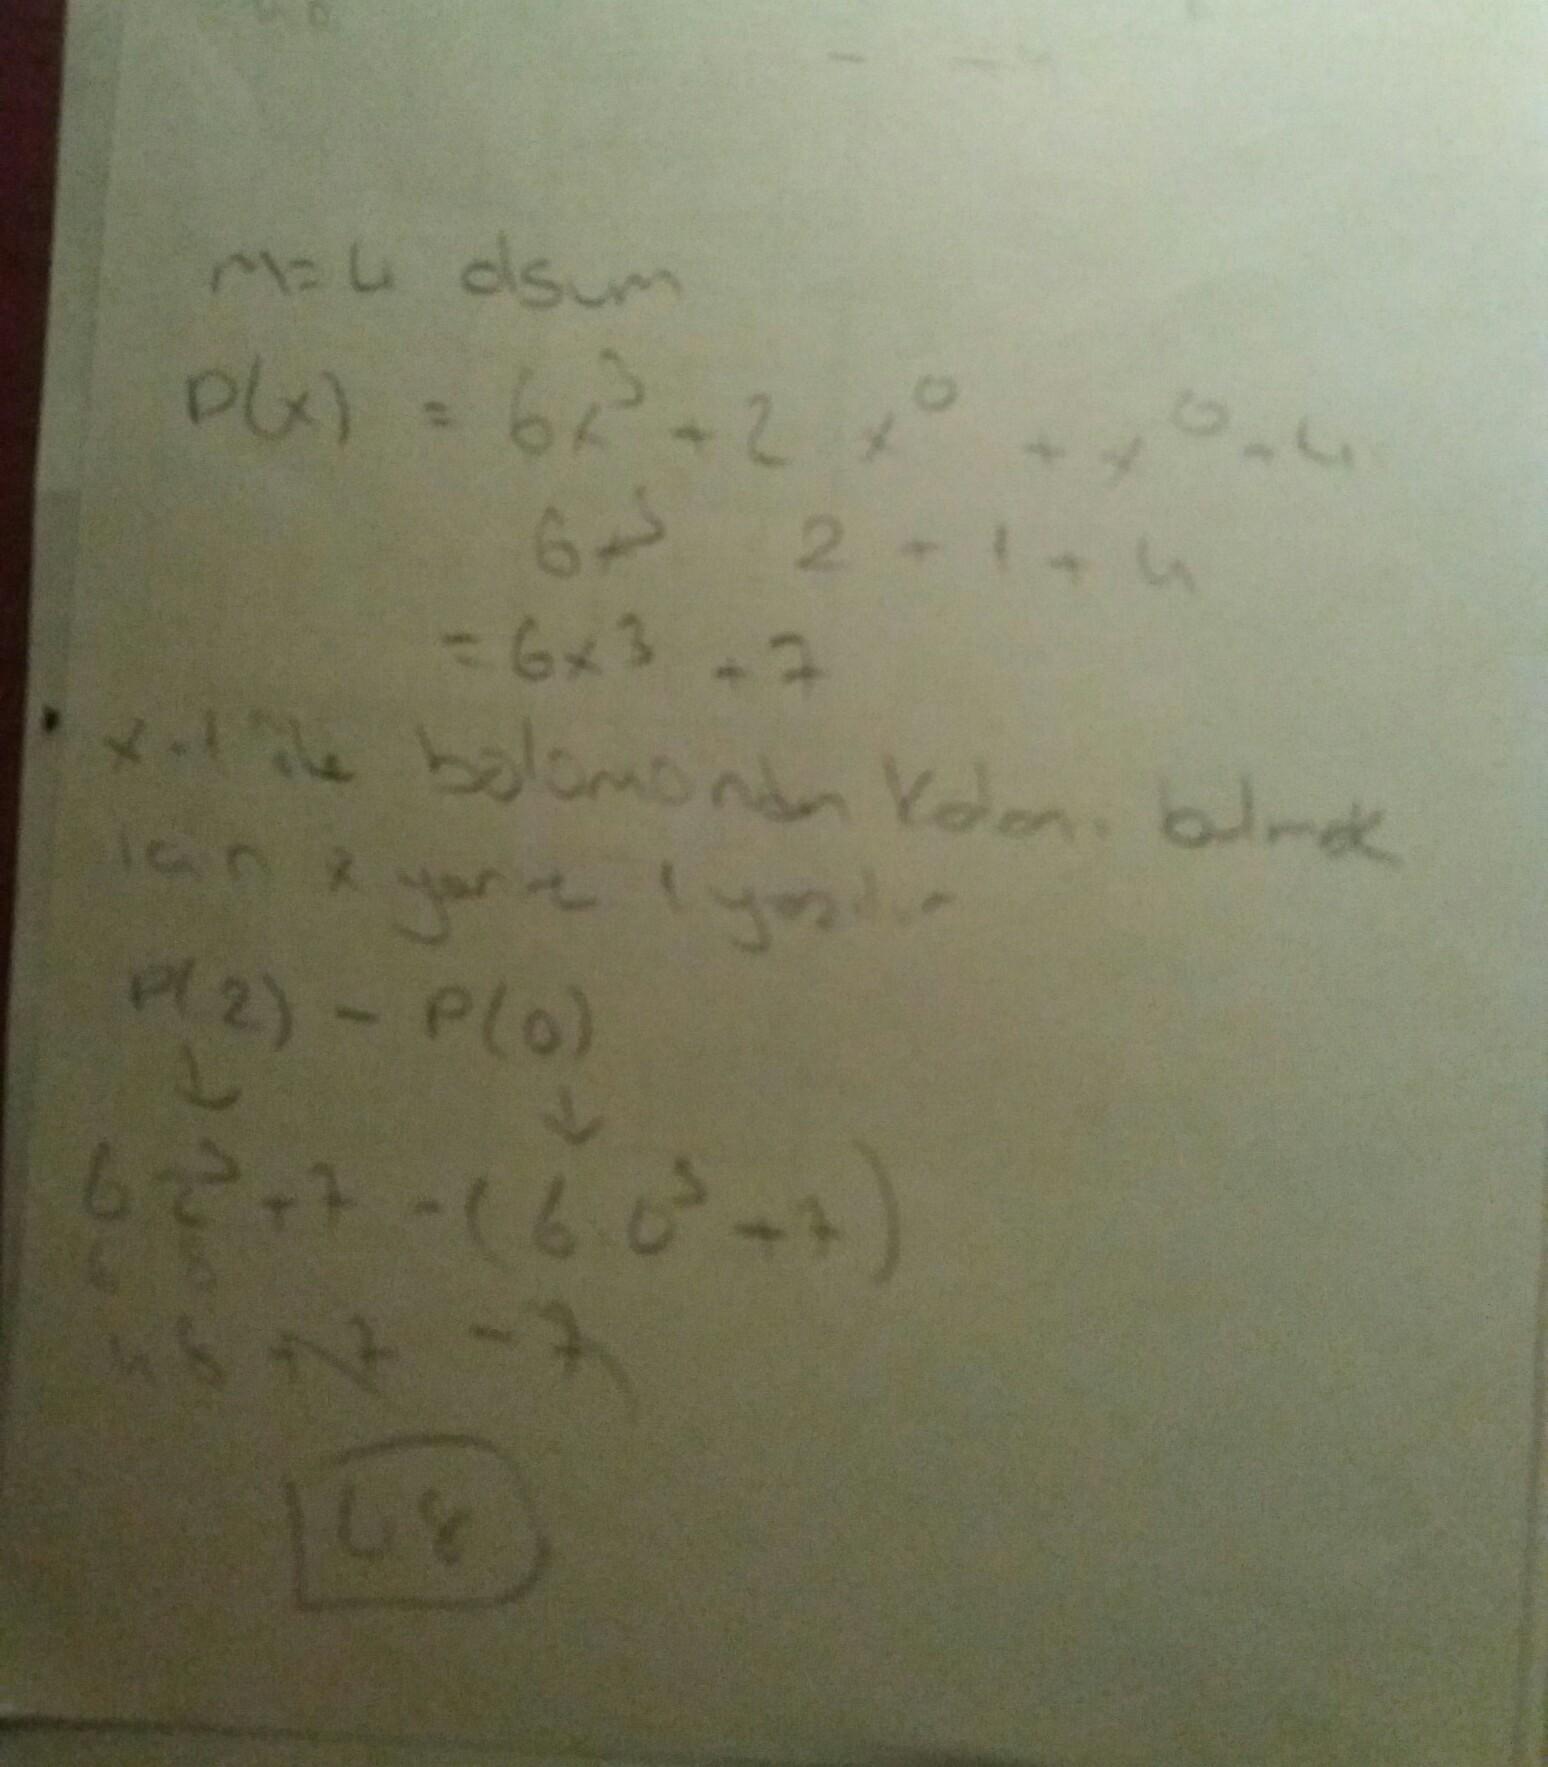 m=4 olsun
P(x) = 6x³ + 2 x⁰ + x⁰ + 4
6x³ 2 + 1 + 4
= 6x³ + 7
x-1 ile bölümünden kalanı bulmak
için x yerine 1 yazılır
P(2) - P(0)
↓ ↓
6 2³ + 7 - ( 6.0³ + 7 )
6 8
48 + 7 - 7
48